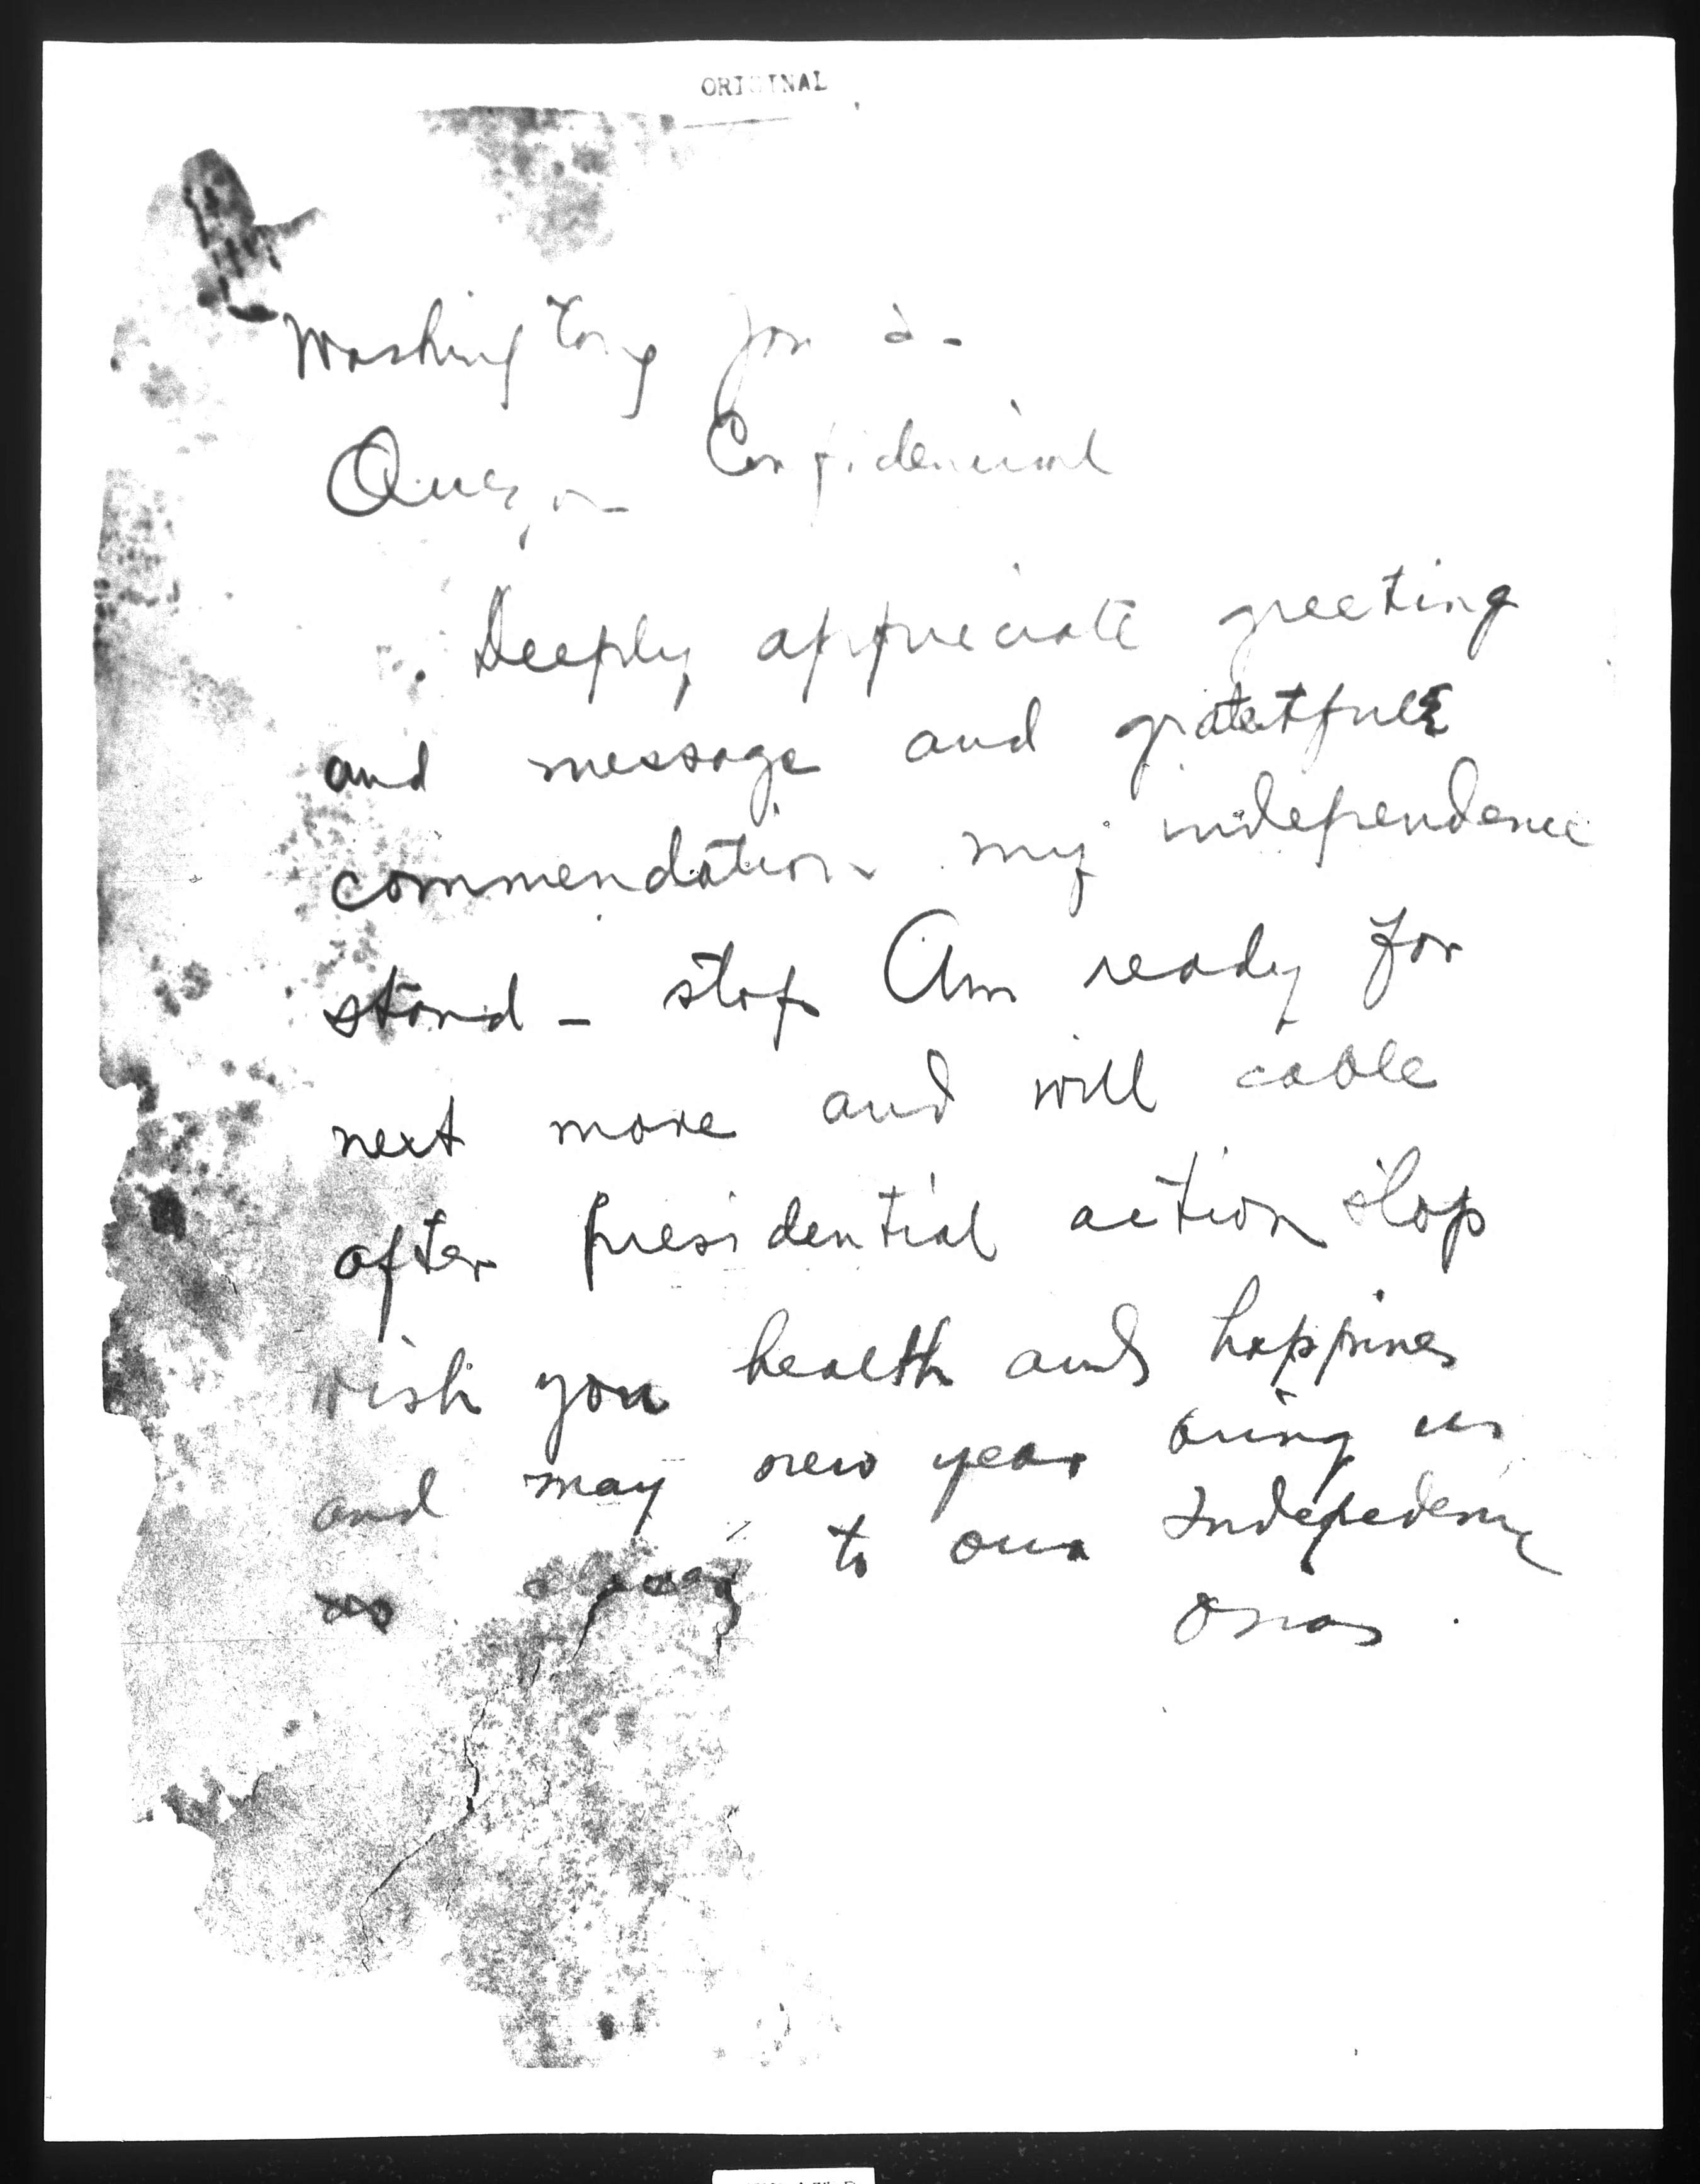 ORIGINAL
Washington Jan 2-
Quezon Confidencial
Deeply appreciate greeting
and message and
commendation my independence
stand - stop Am ready for
next move and will cable
after presidential action stop
wish you health and happines
and may new year bring us
to our Indepedenc
Osias.